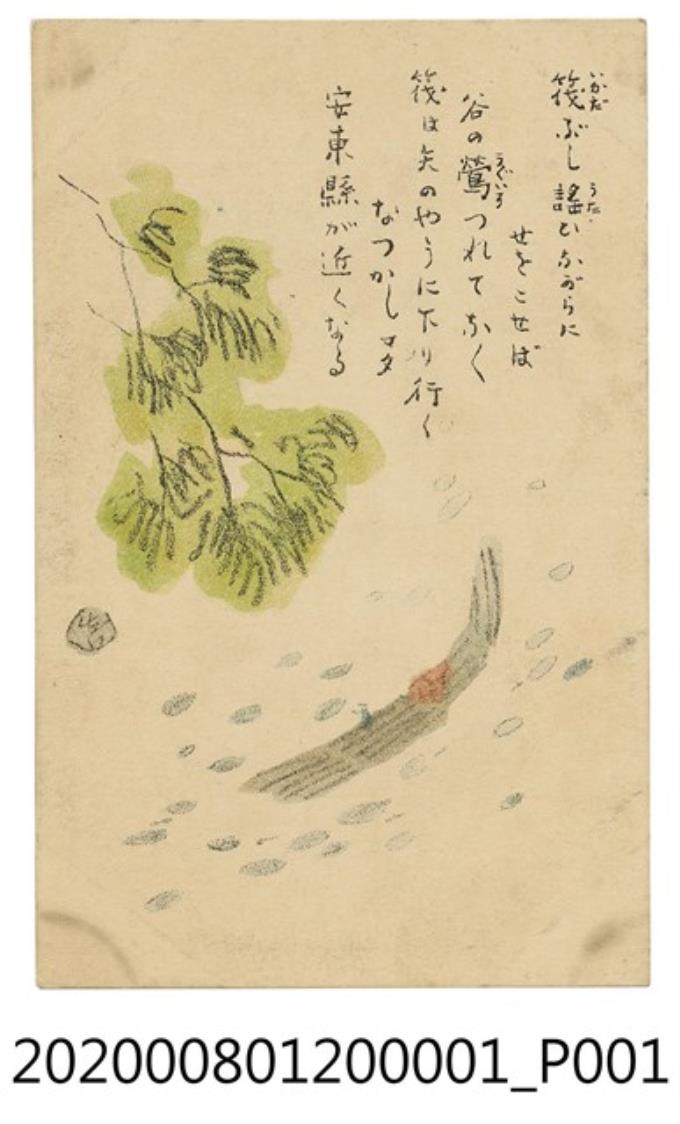 いかだ うた
筏ぶし謡ひながらに
せをこせば
うぐいす
谷の鶯つれてなく
筏は矢のやうに下り行く
なつかし
安東縣が近くなる
202000801200001_P001